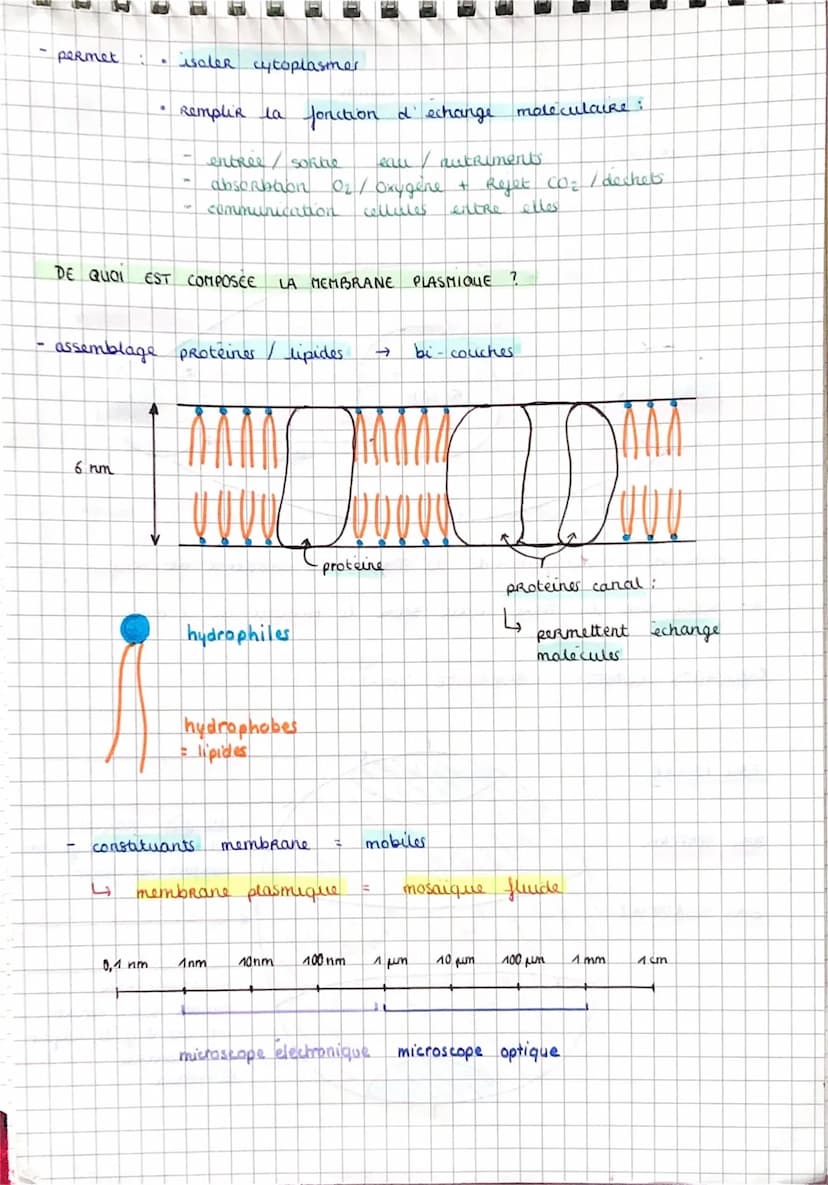 - permet : • isoler cytoplasmes
• Remplir la fonction d'échange moléculaire :
- entrée / sortie eau / nutriments
- absorbtion O2 / oxygène + Rejet CO2 / déchets
- communication cellules entre elles
DE QUOI EST COMPOSÉE LA MEMBRANE PLASMIQUE ?
- assemblage protéines / lipides → bi-couches
6 nm
protéine
protéines canal :
↳ permettent échange
molécules
hydrophiles
hydrophobes
= lipides
- constituants membrane = mobiles
↳ membrane plasmique = mosaïque fluide
0,1 nm 1nm 10nm 100nm 1 µm 10 µm 100 µm 1 mm 1 cm
microscope électronique microscope optique